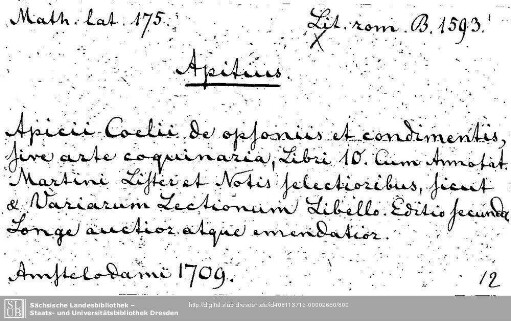 Math. lat. 175.
Lit. rom. B. 1593.
Apitius.
Apicii Coelii de opsoniis et condimentis,
sive arte coquinaria, Libri 10. Cum Annotat.
Martini Lister et Notis selectioribus, sicut
& Variarum Lectionum Libello. Editio secunda
Longe auctior atque emendatior.
Amstelodami 1709.
12
SLUB
Sächsische Landesbibliothek –
Staats- und Universitätsbibliothek Dresden